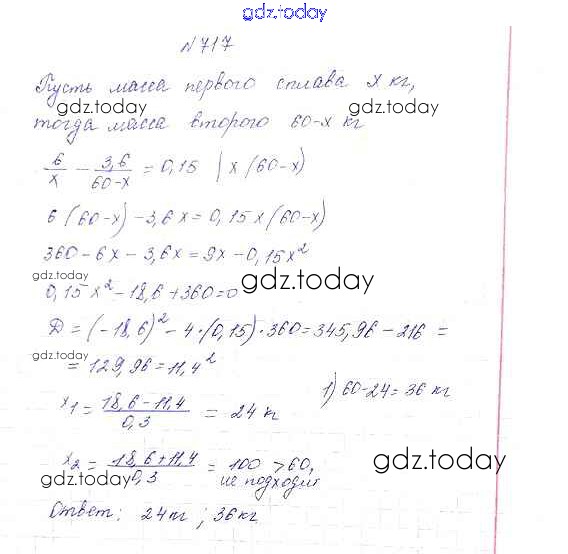 gdz.today
№717
Пусть масса первого сплава x кг,
gdz.today gdz.today
тогда масса второго 60-x кг
6/x - 3,6/60-x = 0,15 | x(60-x)
6(60-x) - 3,6x = 0,15x(60-x)
360 - 6x - 3,6x = 9x - 0,15x²
gdz.today gdz.today
0,15x² - 18,6 + 360 = 0
D = (-18,6)² - 4·(0,15)·360 = 345,96 - 216 =
gdz.today
= 129,96 = 11,4²
x₁ = 18,6 - 11,4/0,3 = 24 кг 1) 60-24 = 36 кг
gdz.today
x₂ = 18,6 + 11,4/0,3 = 100 > 60,
не подходит
gdz.today
Ответ: 24кг; 36кг